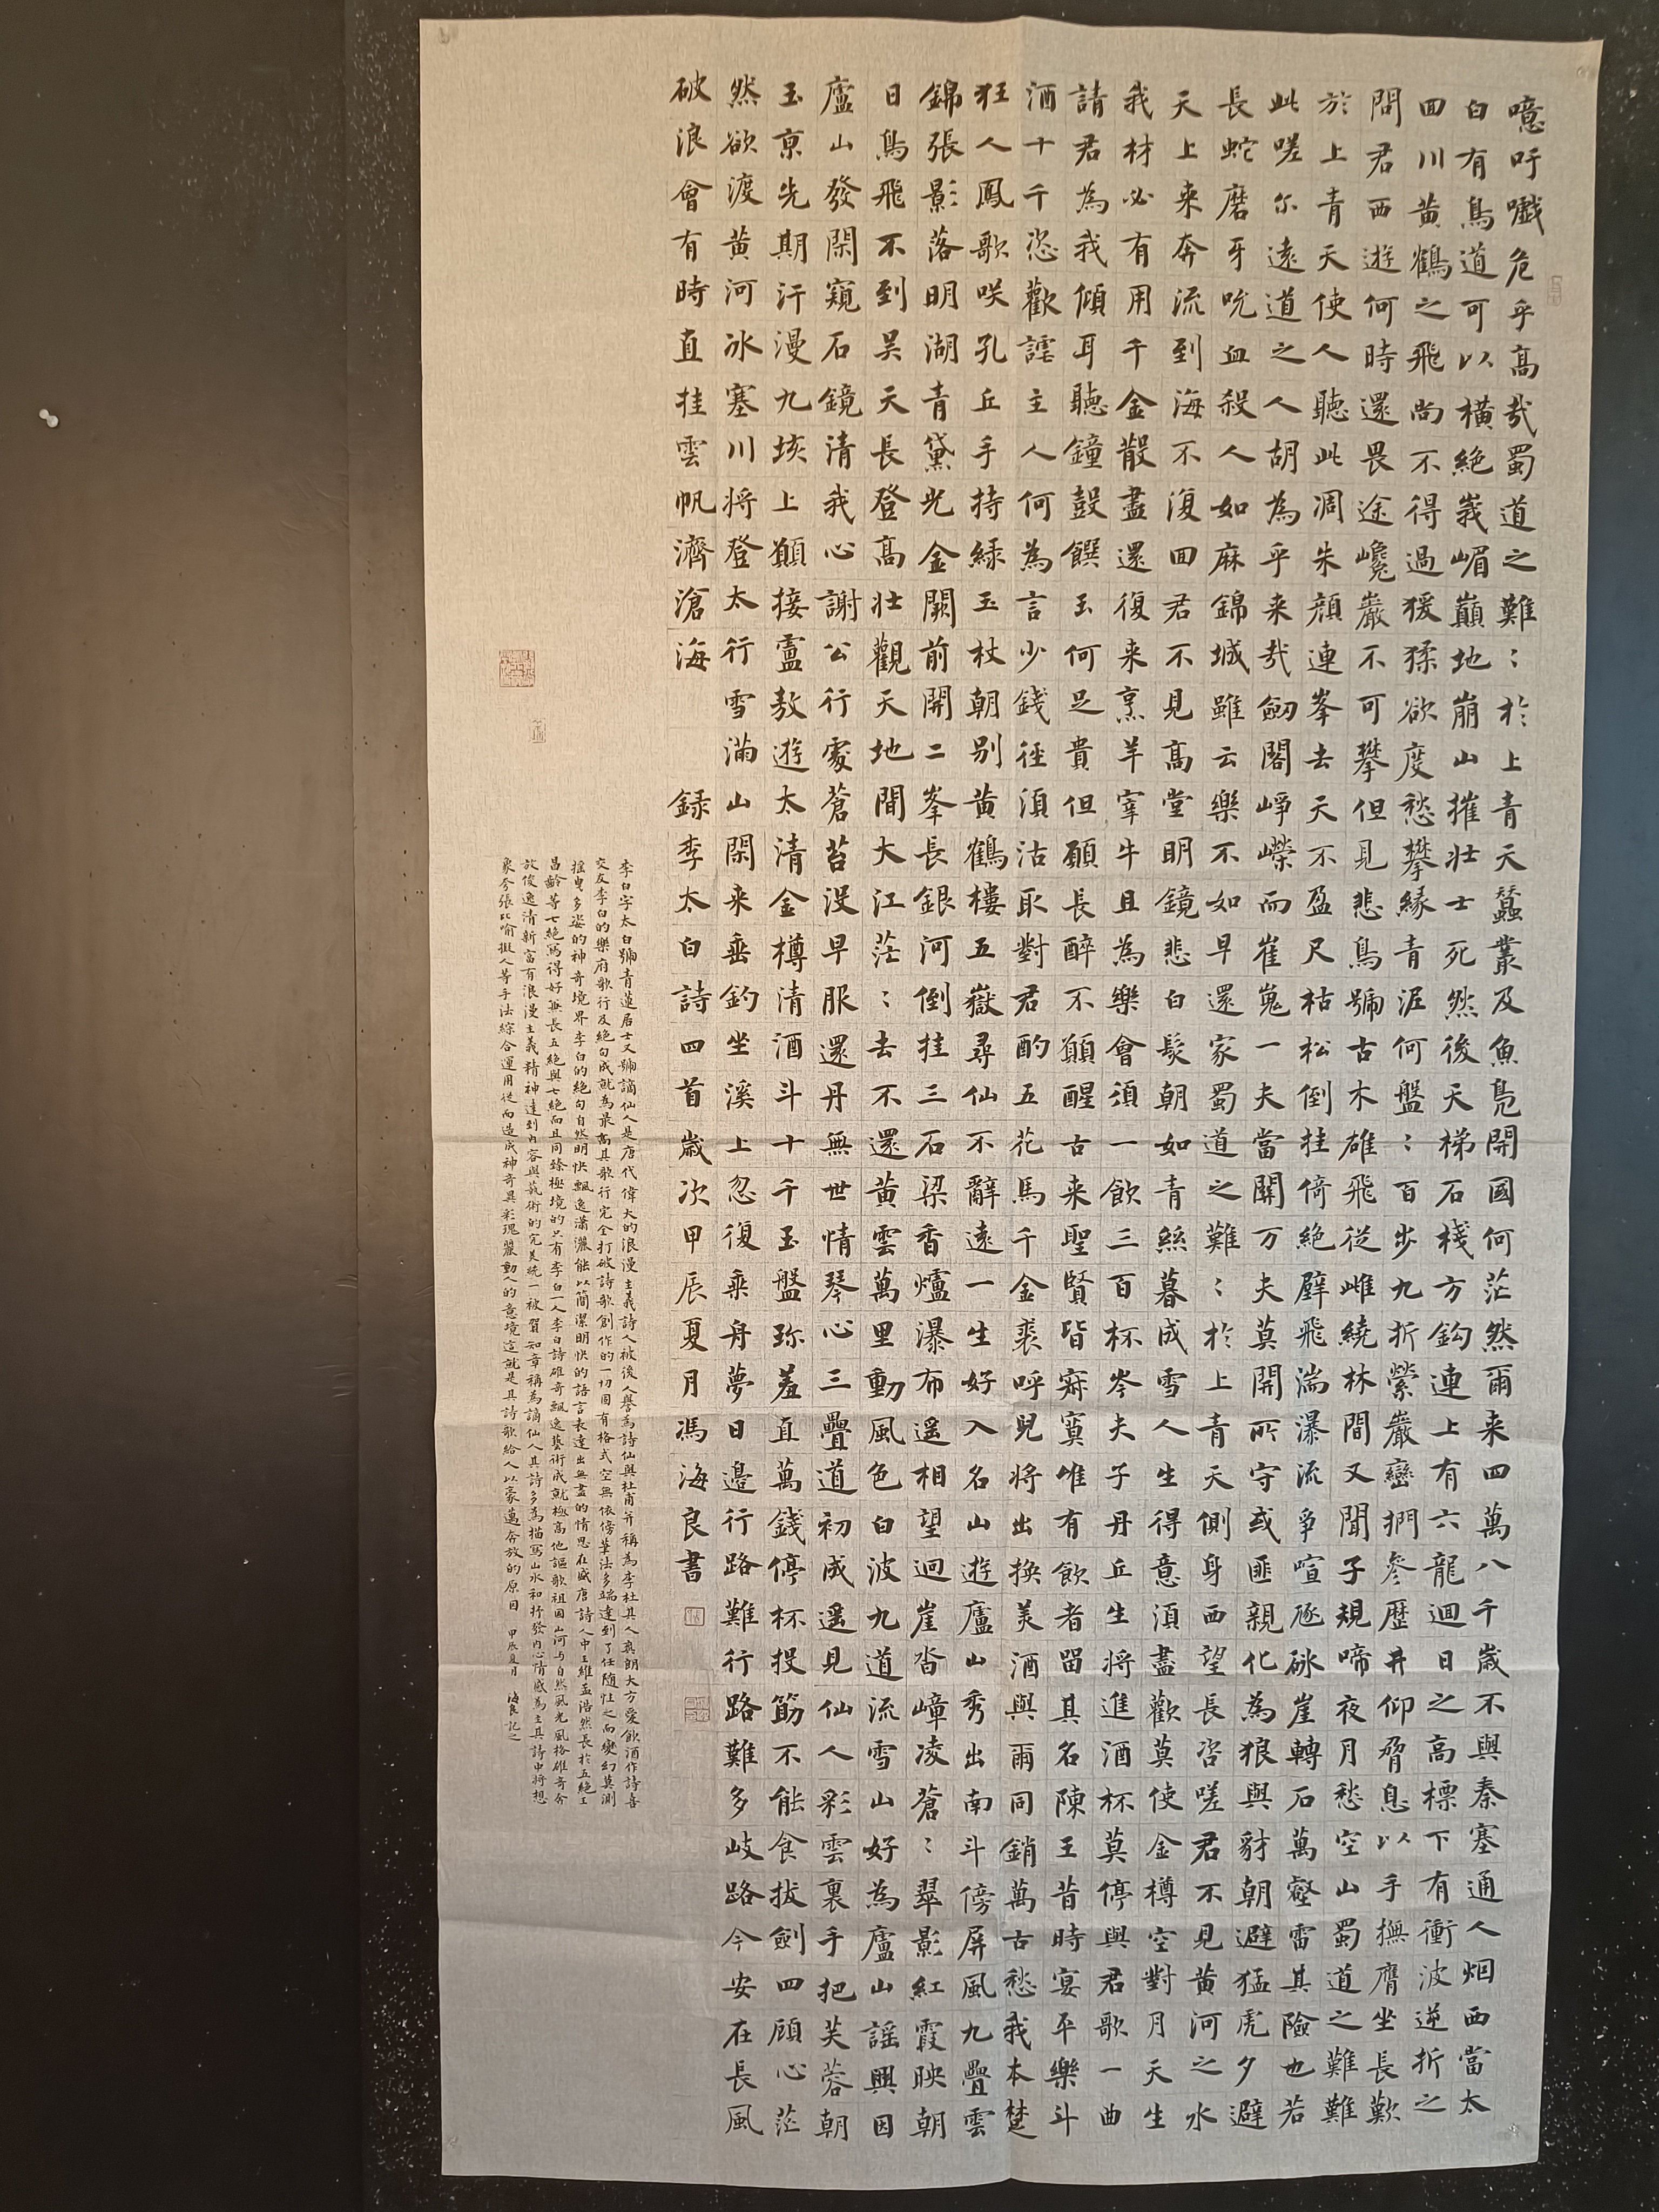 噫吁嚱危乎高哉蜀道之難：於上青天蠶叢及魚鳧開國何茫然爾来四萬八千歲不與秦塞通人烟西當太
白有鳥道可以橫絕峩嵋巔地崩山摧壯士死然後天梯石棧方鈎連上有六龍迴日之高標下有衝波逆折之
回川黃鶴之飛尚不得過猨猱欲度愁攀緣青泥何盤：百步九折縈巖巒捫參歷井仰脅息以手撫膺坐長歎
問君西遊何時還畏途巉巖不可攀但見悲鳥號古木雄飛從雌繞林間又聞子規啼夜月愁空山蜀道之難難
於上青天使人聽此凋朱顏連峯去天不盈尺枯松倒挂倚絕壁飛湍瀑流爭喧豗砯崖轉石萬壑雷其險也若
此嗟尔遠道之人胡為乎来哉劒閣崢嶸而崔嵬一夫當關万夫莫開所守或匪親化為狼與豺朝避猛虎夕避
長蛇磨牙吮血殺人如麻錦城雖云樂不如早還家蜀道之難：於上青天側身西望長咨嗟君不見黃河之水
天上来奔流到海不復回君不見高堂明鏡悲白髮朝如青絲暮成雪人生得意湏盡歡莫使金樽空對月天生
我材必有用千金散盡還復来烹羊宰牛且為樂會須一飲三百杯岑夫子丹丘生將進酒杯莫停與君歌一曲
請君為我傾耳聽鐘鼓饌玉何足貴但願長醉不願醒古来聖賢皆寂寞唯有飲者留其名陳王昔時宴平樂斗
酒十千恣歡謔主人何為言少錢徑湏沽取對君酌五花馬千金裘呼兒將出換美酒與爾同銷萬古愁我本楚
狂人鳳歌咲孔丘手持綠玉杖朝別黃鶴樓五嶽尋仙不辭遠一生好入名山遊廬山秀出南斗傍屏風九疊雲
錦張影落明湖青黛光金闕前開二峯長銀河倒挂三石梁香爐瀑布遥相望迴崖沓嶂凌蒼：翠影紅霞映朝
日鳥飛不到吴天長登高壯觀天地間大江茫：去不還黃雲萬里動風色白波九道流雪山好為廬山謠興因
廬山發閑窺石鏡清我心謝公行處蒼苔没早服還丹無世情琴心三疊道初成遥見仙人彩雲裏手把芙蓉朝
玉京先期汗漫九垓上願接盧敖遊太清金樽清酒斗十千玉盤珎羞直萬錢停杯投筯不能食拔劍四顧心茫
然欲渡黃河冰塞川將登太行雪滿山閑来垂釣坐溪上忽復乘舟夢日邊行路難行路難多岐路今安在長風
破浪會有時直挂雲帆濟滄海 録李太白詩四首歲次甲辰夏月馮海良書
李白字太白號青蓮居士又號謫仙人是唐代偉大的浪漫主義詩人被後人譽為詩仙與杜甫并稱為李杜其人爽朗大方愛飲酒作詩喜
交友李白的樂府歌行及絕句成就為最高其歌行完全打破詩歌創作的一切固有格式空無依傍筆法多端達到了任随性之而變幻莫測
摇曳多姿的神奇境界李白的絕句自然明快飄逸瀟灑能以簡潔明快的語言表達出無盡的情思在盛唐詩人中王維孟浩然長於五絕王
昌齡等七絕寫得好無長五絕與七絕而且同臻極境的只有李白一人李白詩雄奇飄逸藝術成就極高他謳歌祖国山河与自然風光風格雄奇奔
放俊逸清新富有浪漫主義精神達到内容與藝術的完美统一被賀知章稱為謫仙人其詩多為描寫山水和抒發内心情感為主其詩中將想
象夸張比喻拟人等手法綜合運用從而造成神奇異彩瑰麗動人的意境這就是其詩歌給人以豪邁奔放的原因 甲辰夏月 海良記之